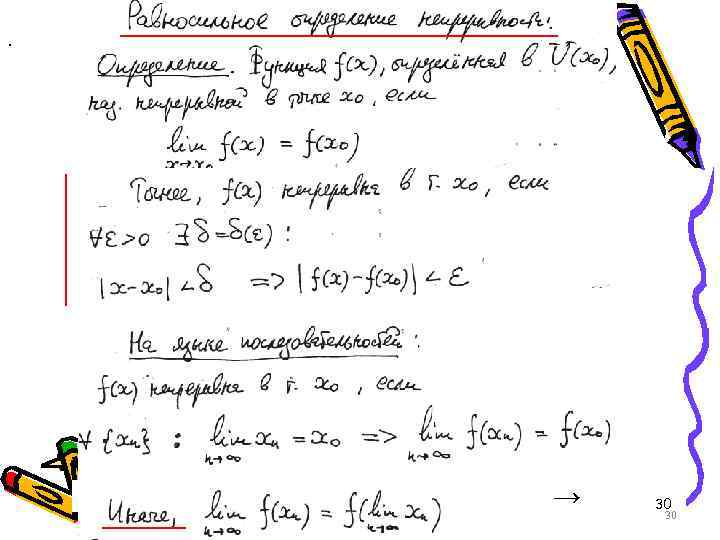 Равносильное определение непрерывности:
.
Определение. Функция f(x), определённая в U(x₀),
наз. непрерывной в точке x₀, если
lim f(x) = f(x₀)
x→x₀
Точнее, f(x) непрерывна в т. x₀, если
∀ε>0 ∃δ=δ(ε) :
|x-x₀| < δ => |f(x)-f(x₀)| < ε
На языке последовательностей:
f(x) непрерывна в т. x₀, если
∀ {xₙ} : lim xₙ = x₀ => lim f(xₙ) = f(x₀)
n→∞ n→∞
Иначе, lim f(xₙ) = f(lim xₙ)
n→∞ n→∞
→
30
30